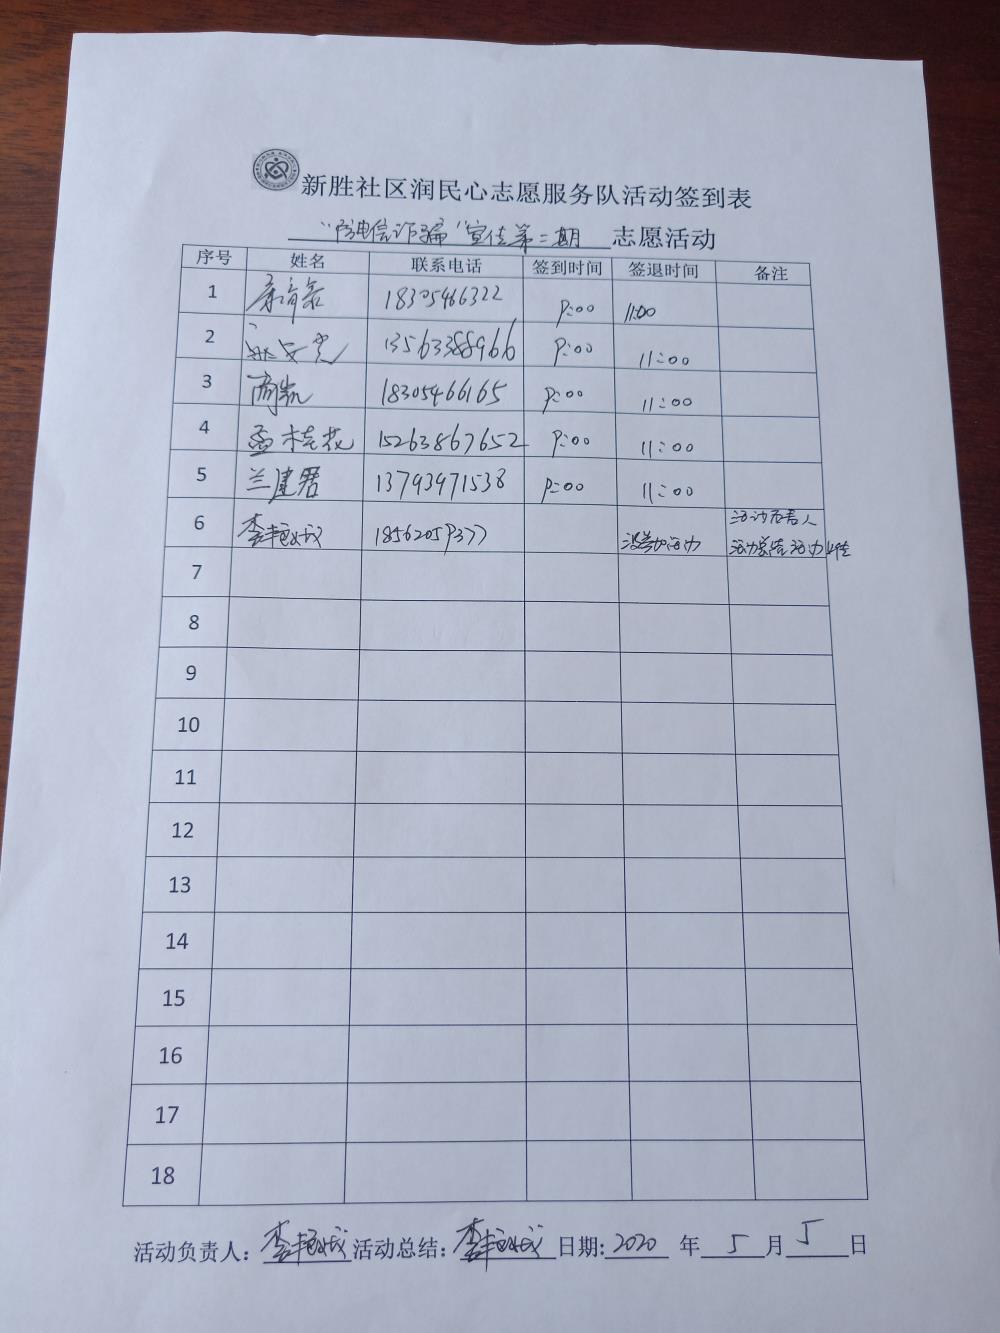 新胜社区润民心志愿服务队活动签到表
"防电信诈骗"宣传第二期 志愿活动
序号 姓名 联系电话 签到时间 签退时间 备注
1 18305466322 9:00 11:00
2 13563388966 9:00 11:00
3 商凯 18305466165 9:00 11:00
4 孟桂花 15263867652 9:00 11:00
5 兰建君 13793971538 9:00 11:00
6 李艳成 18562059377 没参加活动 活动负责人
活动总结 活动
7
8
9
10
11
12
13
14
15
16
17
18
活动负责人: 李艳成 活动总结: 李艳成 日期: 2020 年 5 月 5 日